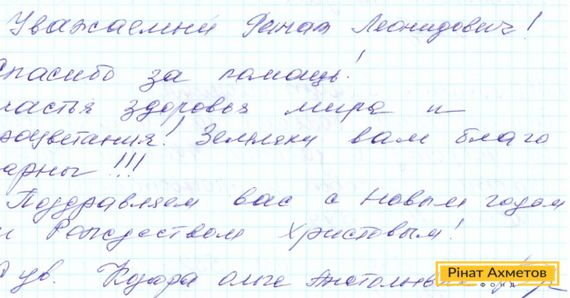 Уважаемый Ринат Леонидович!
Спасибо за помощь!
частья здоровья мира и
роцветания! Земляки вам благо
арны!!!
Поздравляем вас с новым годом
и Рождеством Христовым!
С ув. Ольга Анатольевна
Рінат Ахметов
ФОНД